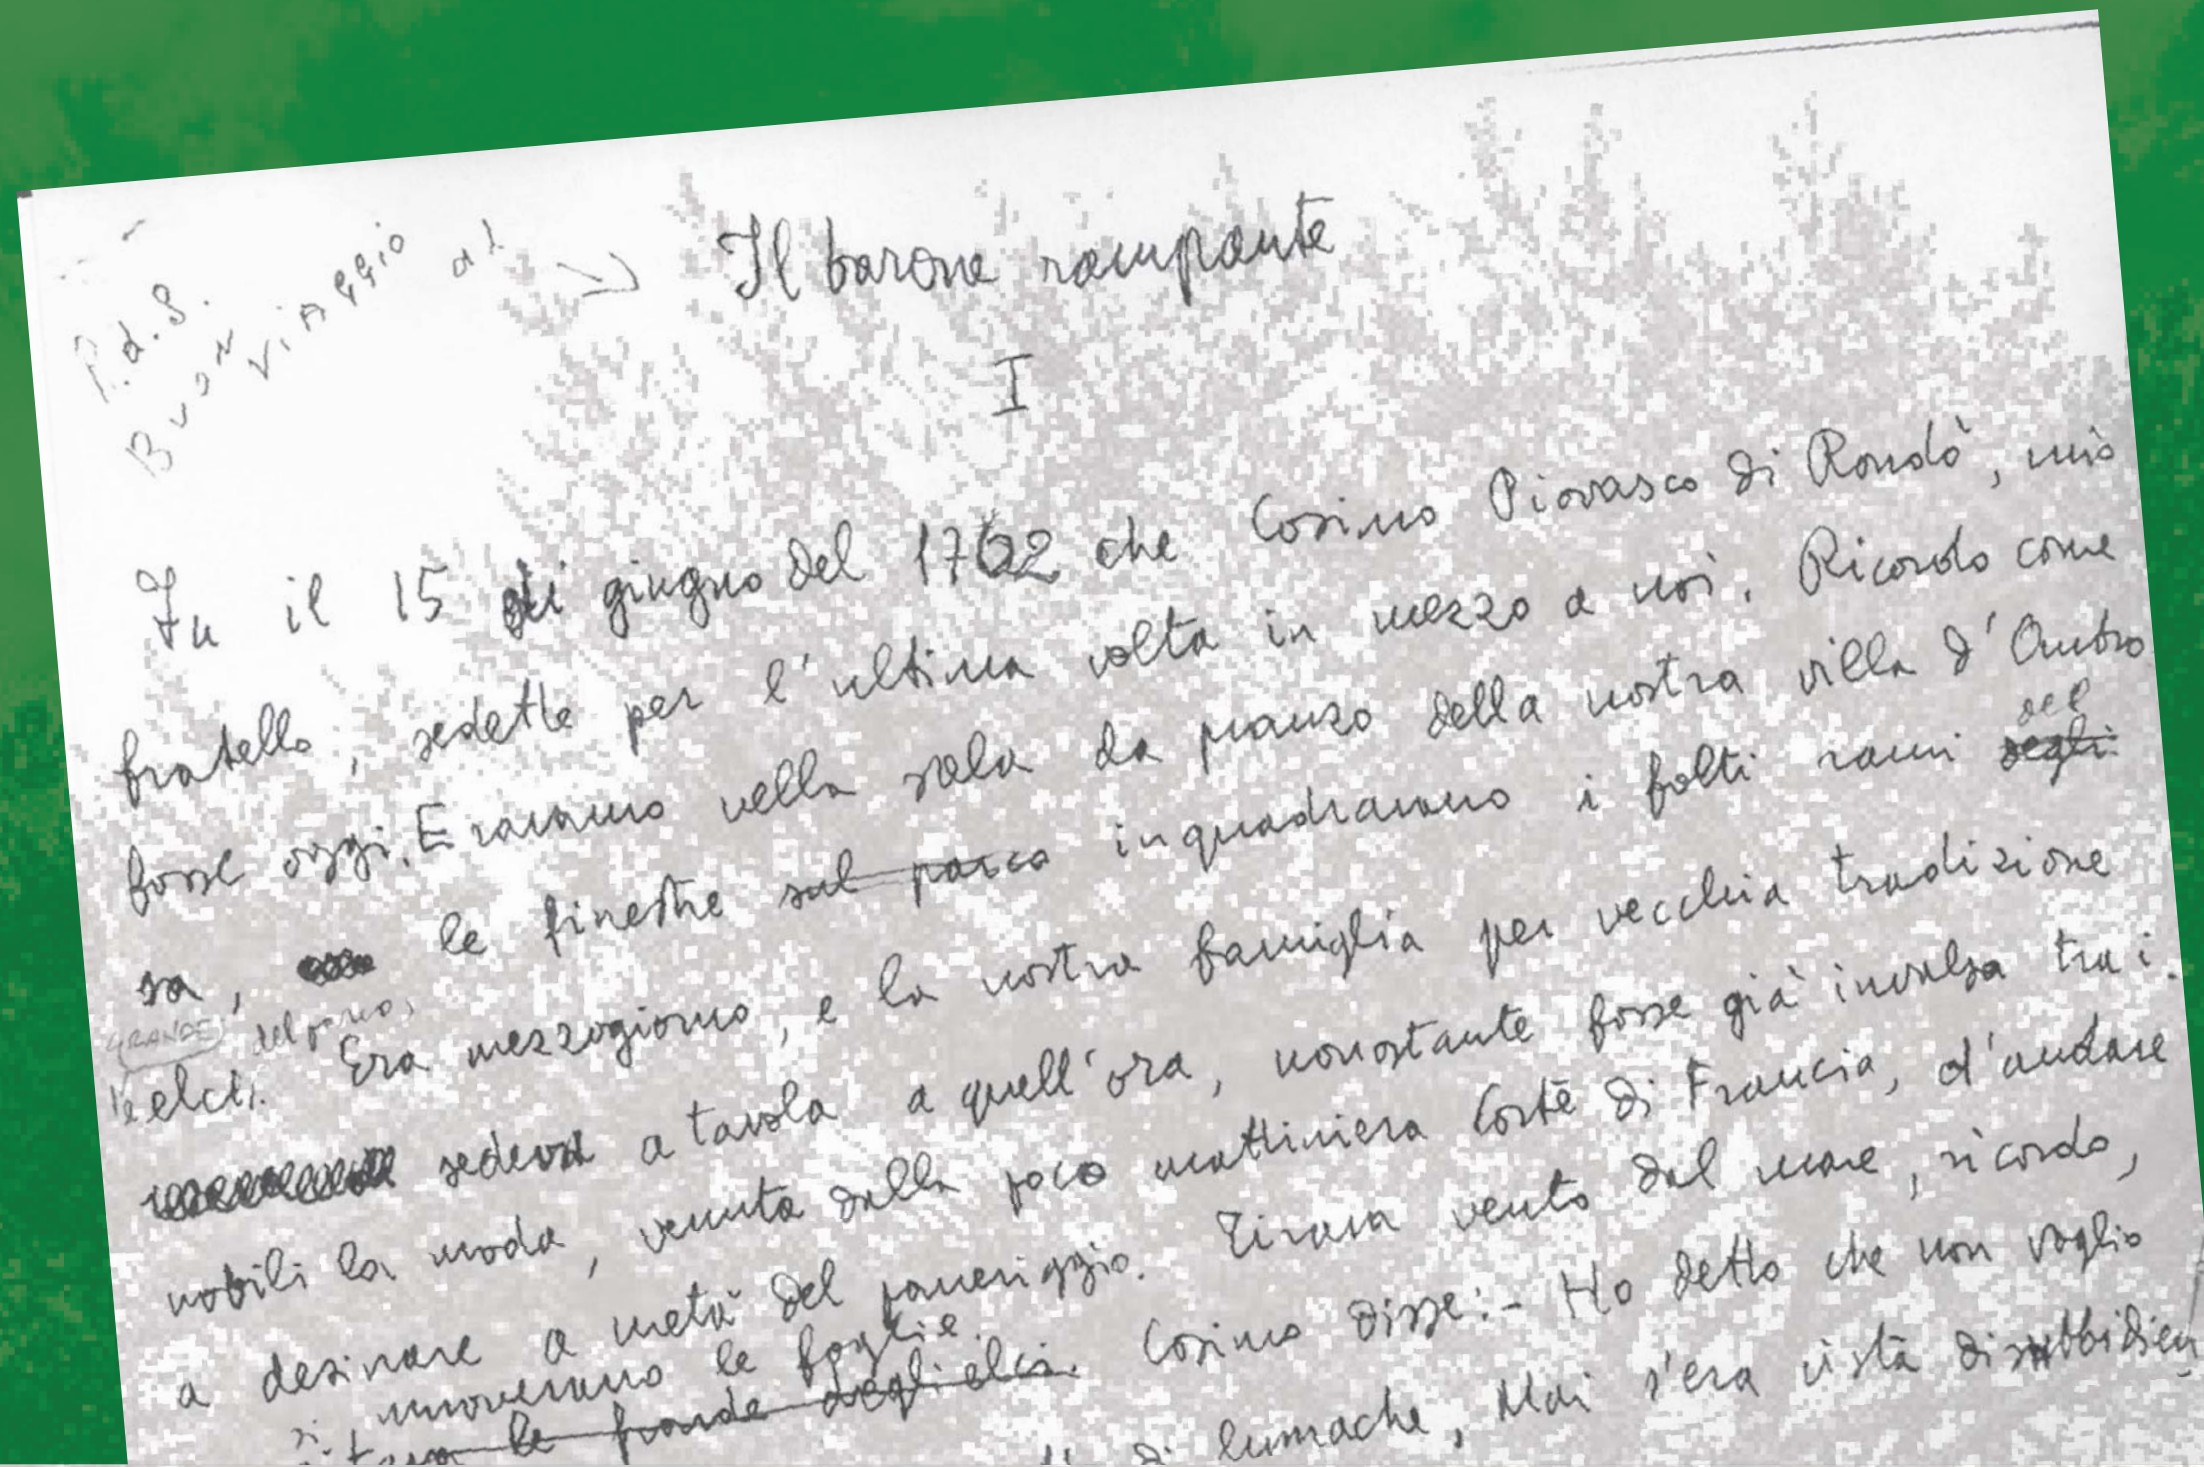 P.d.S.
Buon
viaggio al
Il barone rampante
I
Fu il 15 di giugno del 1762 che Cosimo Piovasco di Rondò, mio
fratello, sedette per l'ultima volta in mezzo a noi. Ricordo come
fosse oggi. Eravamo nella sala da pranzo della nostra villa d'Ombro
del
sa, le finestre sul parco inquadravano i folti rami degli
GRANDE del parco,
elci. Era mezzogiorno, e la nostra famiglia per vecchia tradizione
sedeva a tavola a quell'ora, nonostante fosse già invalsa tra i
nobili la moda, venuta dalla poco mattiniera Corte di Francia, d'andare
a desinare a metà del pomeriggio. Tirava vento dal mare, ricordo,
si muovevano le foglie.
le fronde degli elci. Cosimo disse: - Ho detto che non voglio
di lumache, Mai s'era vista disubbidien